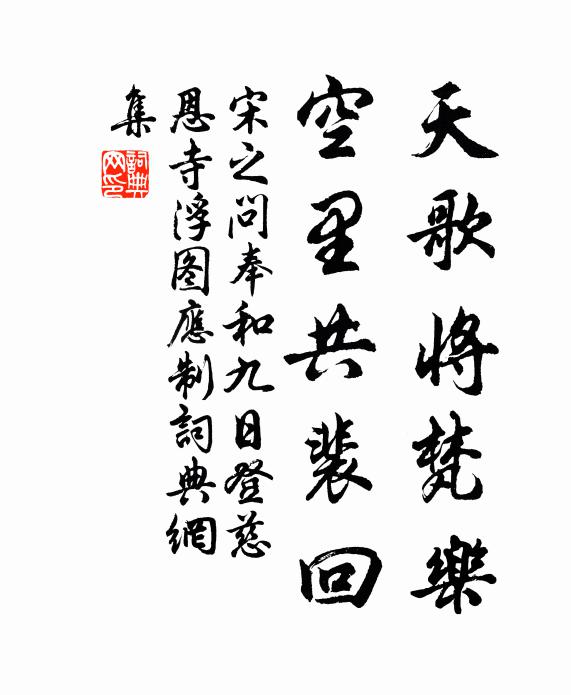 天歌将梵樂
空里共裴回
宋之问奉和九日登慈
恩寺浮图應制詞典網
集
詞典
网印